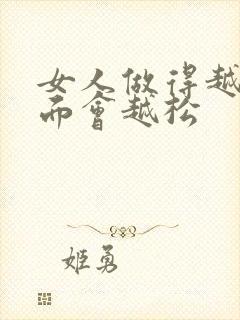 女人做得越
而會越松
姬勇